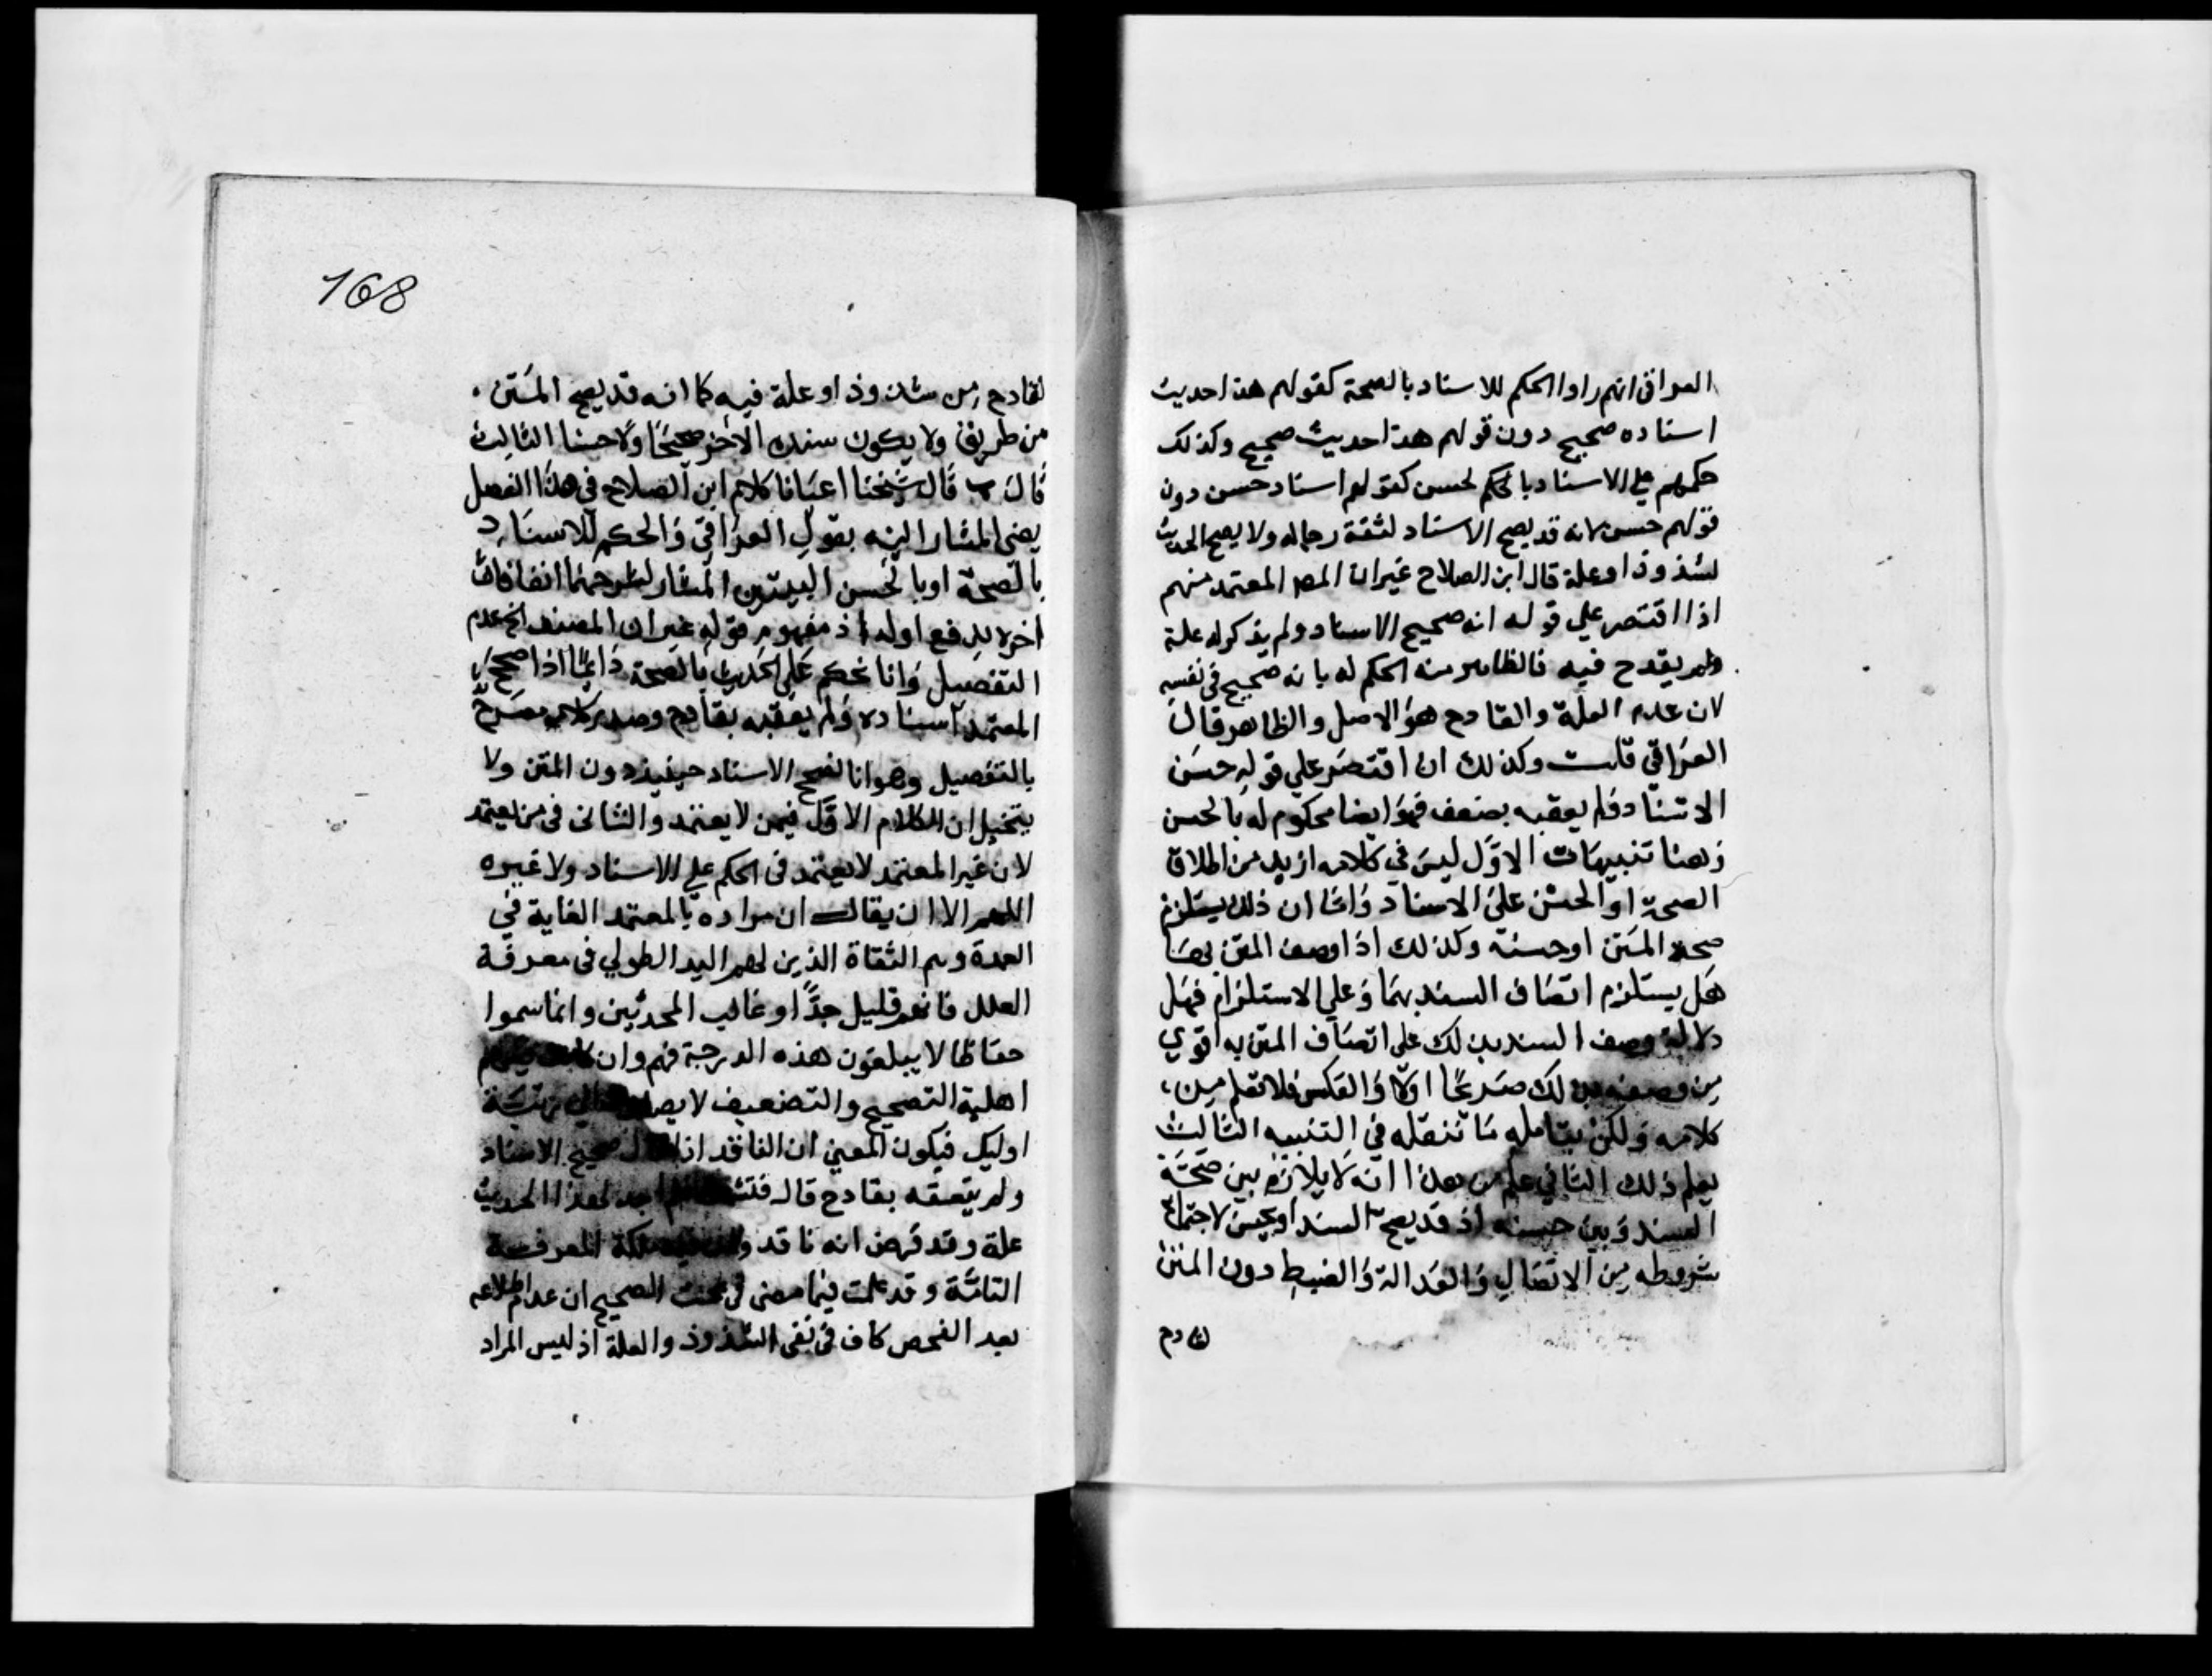 العراقي انهم راوا الحكم للاسناد بالصحة كقولهم هذا حديث
اسناده صحيح دون قولهم هذا حديث صحيح وكذلك
حكمهم علي الاسناد بالحكم لحسن كقولهم اسناد حسن دون
قولهم حسن لانه قد يصح الاسناد لثقة رجاله ولا يصح الحديث
لشذوذ او علة قال ابن الصلاح غيران المص المعتمد منهم
اذا اقتصر علي قوله انه صحيح الاسناد ولم يذكر له علة
ولم يقدح فيه فالظاهر منه الحكم له بانه صحيح في نفسه
لان عدم العلة والقادح هو الاصل والظاهر قال
العراقي قلت وكذلك ان اقتصر علي قوله حسن
الاسناد فلم يعقبه بضعف فهو ايضا محكوم له بالحسن
وهنا تنبيهات الاول ليس في كلامه ازيد من اطلاق
الصحة او الحسن على الاسناد واما ان ذلك يستلزم
صحة المتن او حسنه وكذلك اذا وصف المتن بهما
هل يستلزم اتصاف السند بهما وعلي الاستلزام فهل
دلالة وصف السند بذلك على اتصاف المتن به اقوي
من وصفه بذلك صريحا اولا والعكس فلا تعلم من
كلامه ولكن بتامله ما ننقله في التنبيه الثالث
يعلم ذلك الثاني علم من هذا انه لا يلازم بين صحة
السند وبين حسنه اذ قد يصح السند او يحسن لاجتماع
شروطه من الاتصال والعدالة والضبط دون المتن
لقادح
168
لقادح من شذوذ او علة فيه كما انه قد يصح المتن
من طريق ولا يكون سنده الاخر صحيحا ولا حسنا الثالث
قال ب قال شيخنا اعتانا كلام ابن الصلاح في هذا الفصل
يعني المشار اليه بقول العراقي والحكم للاسناد
بالصحة او بالحسن البيتين المشار لشرحهما انفا كان
اخره يدفع اوله اذ مفهوم قوله غيران المصنف الخ عدم
التفصيل وانا نحكم علي الحديث بالصحة دائما اذا صحح
المعتمد اسناده ولم يعقبه بقادح وصدر كلامه مصرح
بالتفصيل وهو انا نصحح الاسناد حينيذ دون المتن ولا
يتخيل ان الكلام الاول فيمن لا يعتمد والثاني في من يعتمد
لان غير المعتمد لا يعتمد في الحكم علي الاسناد ولا غيره
اللهم الا ان يقال ان مراده بالمعتمد الغاية في
العمدة وهم الثقاة الذين لهم اليد الطولي في معرفة
العلل فانهم قليل جدا وغالب المحدثين وانما سموا
حفاظا لا يبلغون هذه الدرجة فهم وان كانت فيهم
اهلية التصحيح والتضعيف لا يصلون الي رتبة
اوليك فيكون المعني ان الناقد اذا قال صحيح الاسناد
ولم يتعقبه بقادح قال فتشت فلم اجد لهذا الحديث
علة وقد فرض انه ناقد وله فيه ملكة المعرفة
التامة وقد علمت فيما مضى في بحث الصحيح ان عدم اطلاعه
بعد الفحص كاف في نفي الشذوذ والعلة اذ ليس المراد